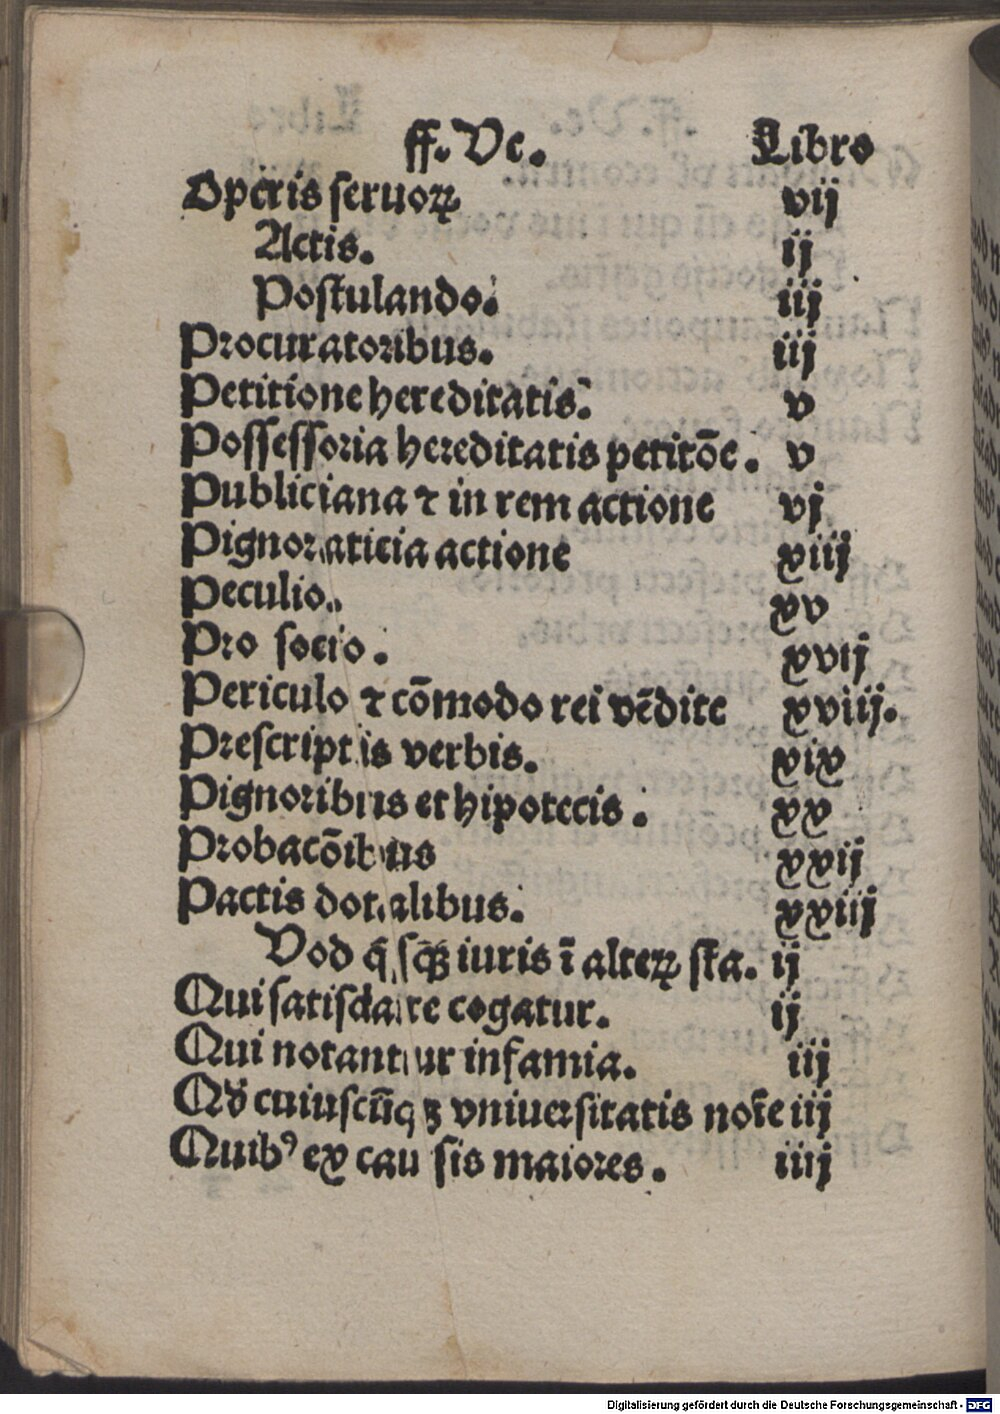 ff. Ve. Libro
Operis seruoꝝ vij
Actis. ij
Postulando. iij
Procuratoribus. iij
Petitione hereditatis. v
Possessoria hereditatis petitōe. v
Publiciana ⁊ in rem actione vj
Pignoraticia actione xiij
Peculio. xv
Pro socio. xvij
Periculo ⁊ cōmodo rei vēdite xviij.
Prescriptis verbis. xix
Pignoribus et hipotecis. xx
Probacōibus xxij
Pactis dotalibus. xxiij
Vod q̄ sq̄ꝫ iuris ī alteꝝ sta. ij
Qui satisdare cogatur. ij
Qui notantur infamia. iij
Qd cuiuscūqꝫ vniuersitatis noīe iij
Quibꝰ ex causis maiores. iiij
Digitalisierung gefördert durch die Deutsche Forschungsgemeinschaft - DFG